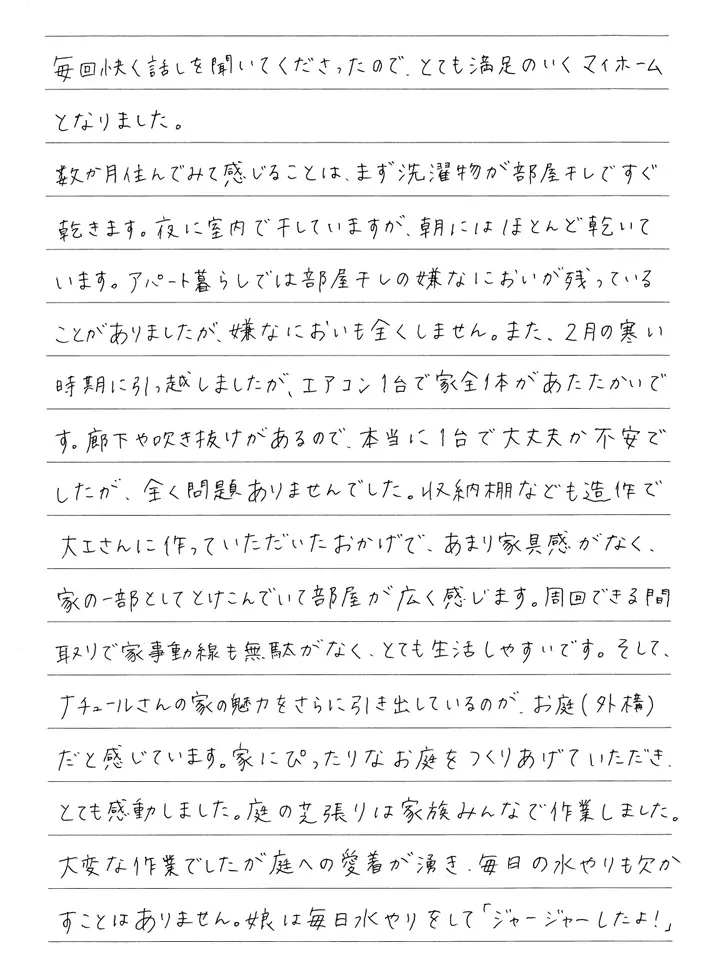 毎回快く話しを聞いてくださったので、とても満足のいくマイホーム
となりました。
数か月住んでみて感じることは、まず洗濯物が部屋干しですぐ
乾きます。夜に室内で干していますが、朝にはほとんど乾いて
います。アパート暮らしでは部屋干しの嫌なにおいが残っている
ことがありましたが、嫌なにおいも全くしません。また、2月の寒い
時期に引っ越しましたが、エアコン1台で家全体があたたかいで
す。廊下や吹き抜けがあるので、本当に1台で大丈夫か不安で
したが、全く問題ありませんでした。収納棚なども造作で
大工さんに作っていただいたおかげで、あまり家具感がなく、
家の一部としてとけこんでいて部屋が広く感じます。周回できる間
取りで家事動線も無駄がなく、とても生活しやすいです。そして、
ナチュールさんの家の魅力をさらに引き出しているのが、お庭(外構)
だと感じています。家にぴったりなお庭をつくりあげていただき、
とても感動しました。庭の芝張りは家族みんなで作業しました。
大変な作業でしたが庭への愛着が湧き、毎日の水やりも欠か
すことはありません。娘は毎日水やりをして「ジャージャーしたよ!」